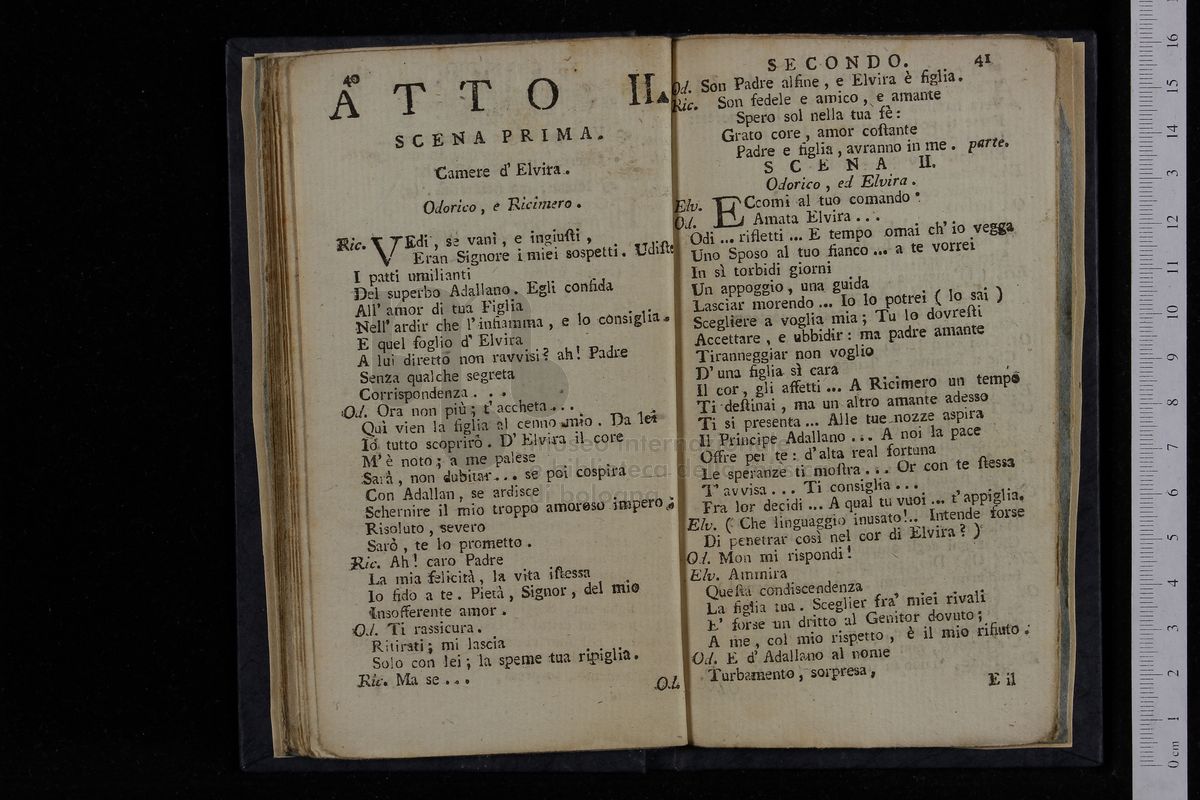 40
ATTO II.
SCENA PRIMA.
Camere d' Elvira.
Odorico, e Ricimero.
Ric. VEdi, se vani, e ingiuſti,
Eran Signore i miei sospetti. Udiſte
I patti umilianti
Del superbo Adallano. Egli confida
All' amor di tua Figlia
Nell' ardir che l' infiamma, e lo consiglia.
E quel foglio d' Elvira
A lui diretto non ravvisi? ah! Padre
Senza qualche segreta
Corrispondenza...
Od. Ora non più; t' accheta...
Quì vien la figlia al cenno mio. Da lei
Io tutto scoprirò. D' Elvira il core
M' è noto; a me palese
Sarà, non dubitar... se poi cospira
Con Adallan, se ardisce
Schernire il mio troppo amoroso impero;
Risoluto, severo
Sarò, te lo prometto.
Ric. Ah! caro Padre
La mia felicità, la vita iſtessa
Io fido a te. Pietà, Signor, del mio
Insofferente amor.
Od. Ti rassicura.
Ritirati; mi lascia
Solo con lei; la speme tua ripiglia.
Ric. Ma se...
Od.
SECONDO. 41
Od. Son Padre alfine, e Elvira è figlia.
Ric. Son fedele e amico, e amante
Spero sol nella tua fè:
Grato core, amor coſtante
Padre e figlia, avranno in me. parte.
SCENA II.
Odorico, ed Elvira.
Elv. ECcomi al tuo comando.
Od. Amata Elvira...
Odi... rifletti... E tempo omai ch' io vegga
Uno Sposo al tuo fianco... a te vorrei
In sì torbidi giorni
Un appoggio, una guida
Lasciar morendo... Io lo potrei (lo sai)
Scegliere a voglia mia; Tu lo dovreſti
Accettare, e ubbidir: ma padre amante
Tiranneggiar non voglio
D' una figlia sì cara
Il cor, gli affetti... A Ricimero un tempo
Ti deſtinai, ma un altro amante adesso
Ti si presenta... Alle tue nozze aspira
Il Principe Adallano... A noi la pace
Offre per te: d' alta real fortuna
Le speranze ti moſtra... Or con te ſtessa
T' avvisa... Ti consiglia...
Fra lor decidi... A qual tu vuoi... t' appiglia.
Elv. (Che linguaggio inusato!.. Intende forse
Di penetrar così nel cor di Elvira?)
Od. Mon mi rispondi!
Elv. Ammira
Queſta condiscendenza
La figlia tua. Sceglier fra' miei rivali
E' forse un dritto al Genitor dovuto;
A me, col mio rispetto, è il mio rifiuto.
Od. E d' Adallano al nome
Turbamento, sorpresa,
E il
museo internazionale
e biblioteca della musica
di bologna
16
15
14
13
12
11
10
9
8
7
6
5
4
3
2
1
0 cm